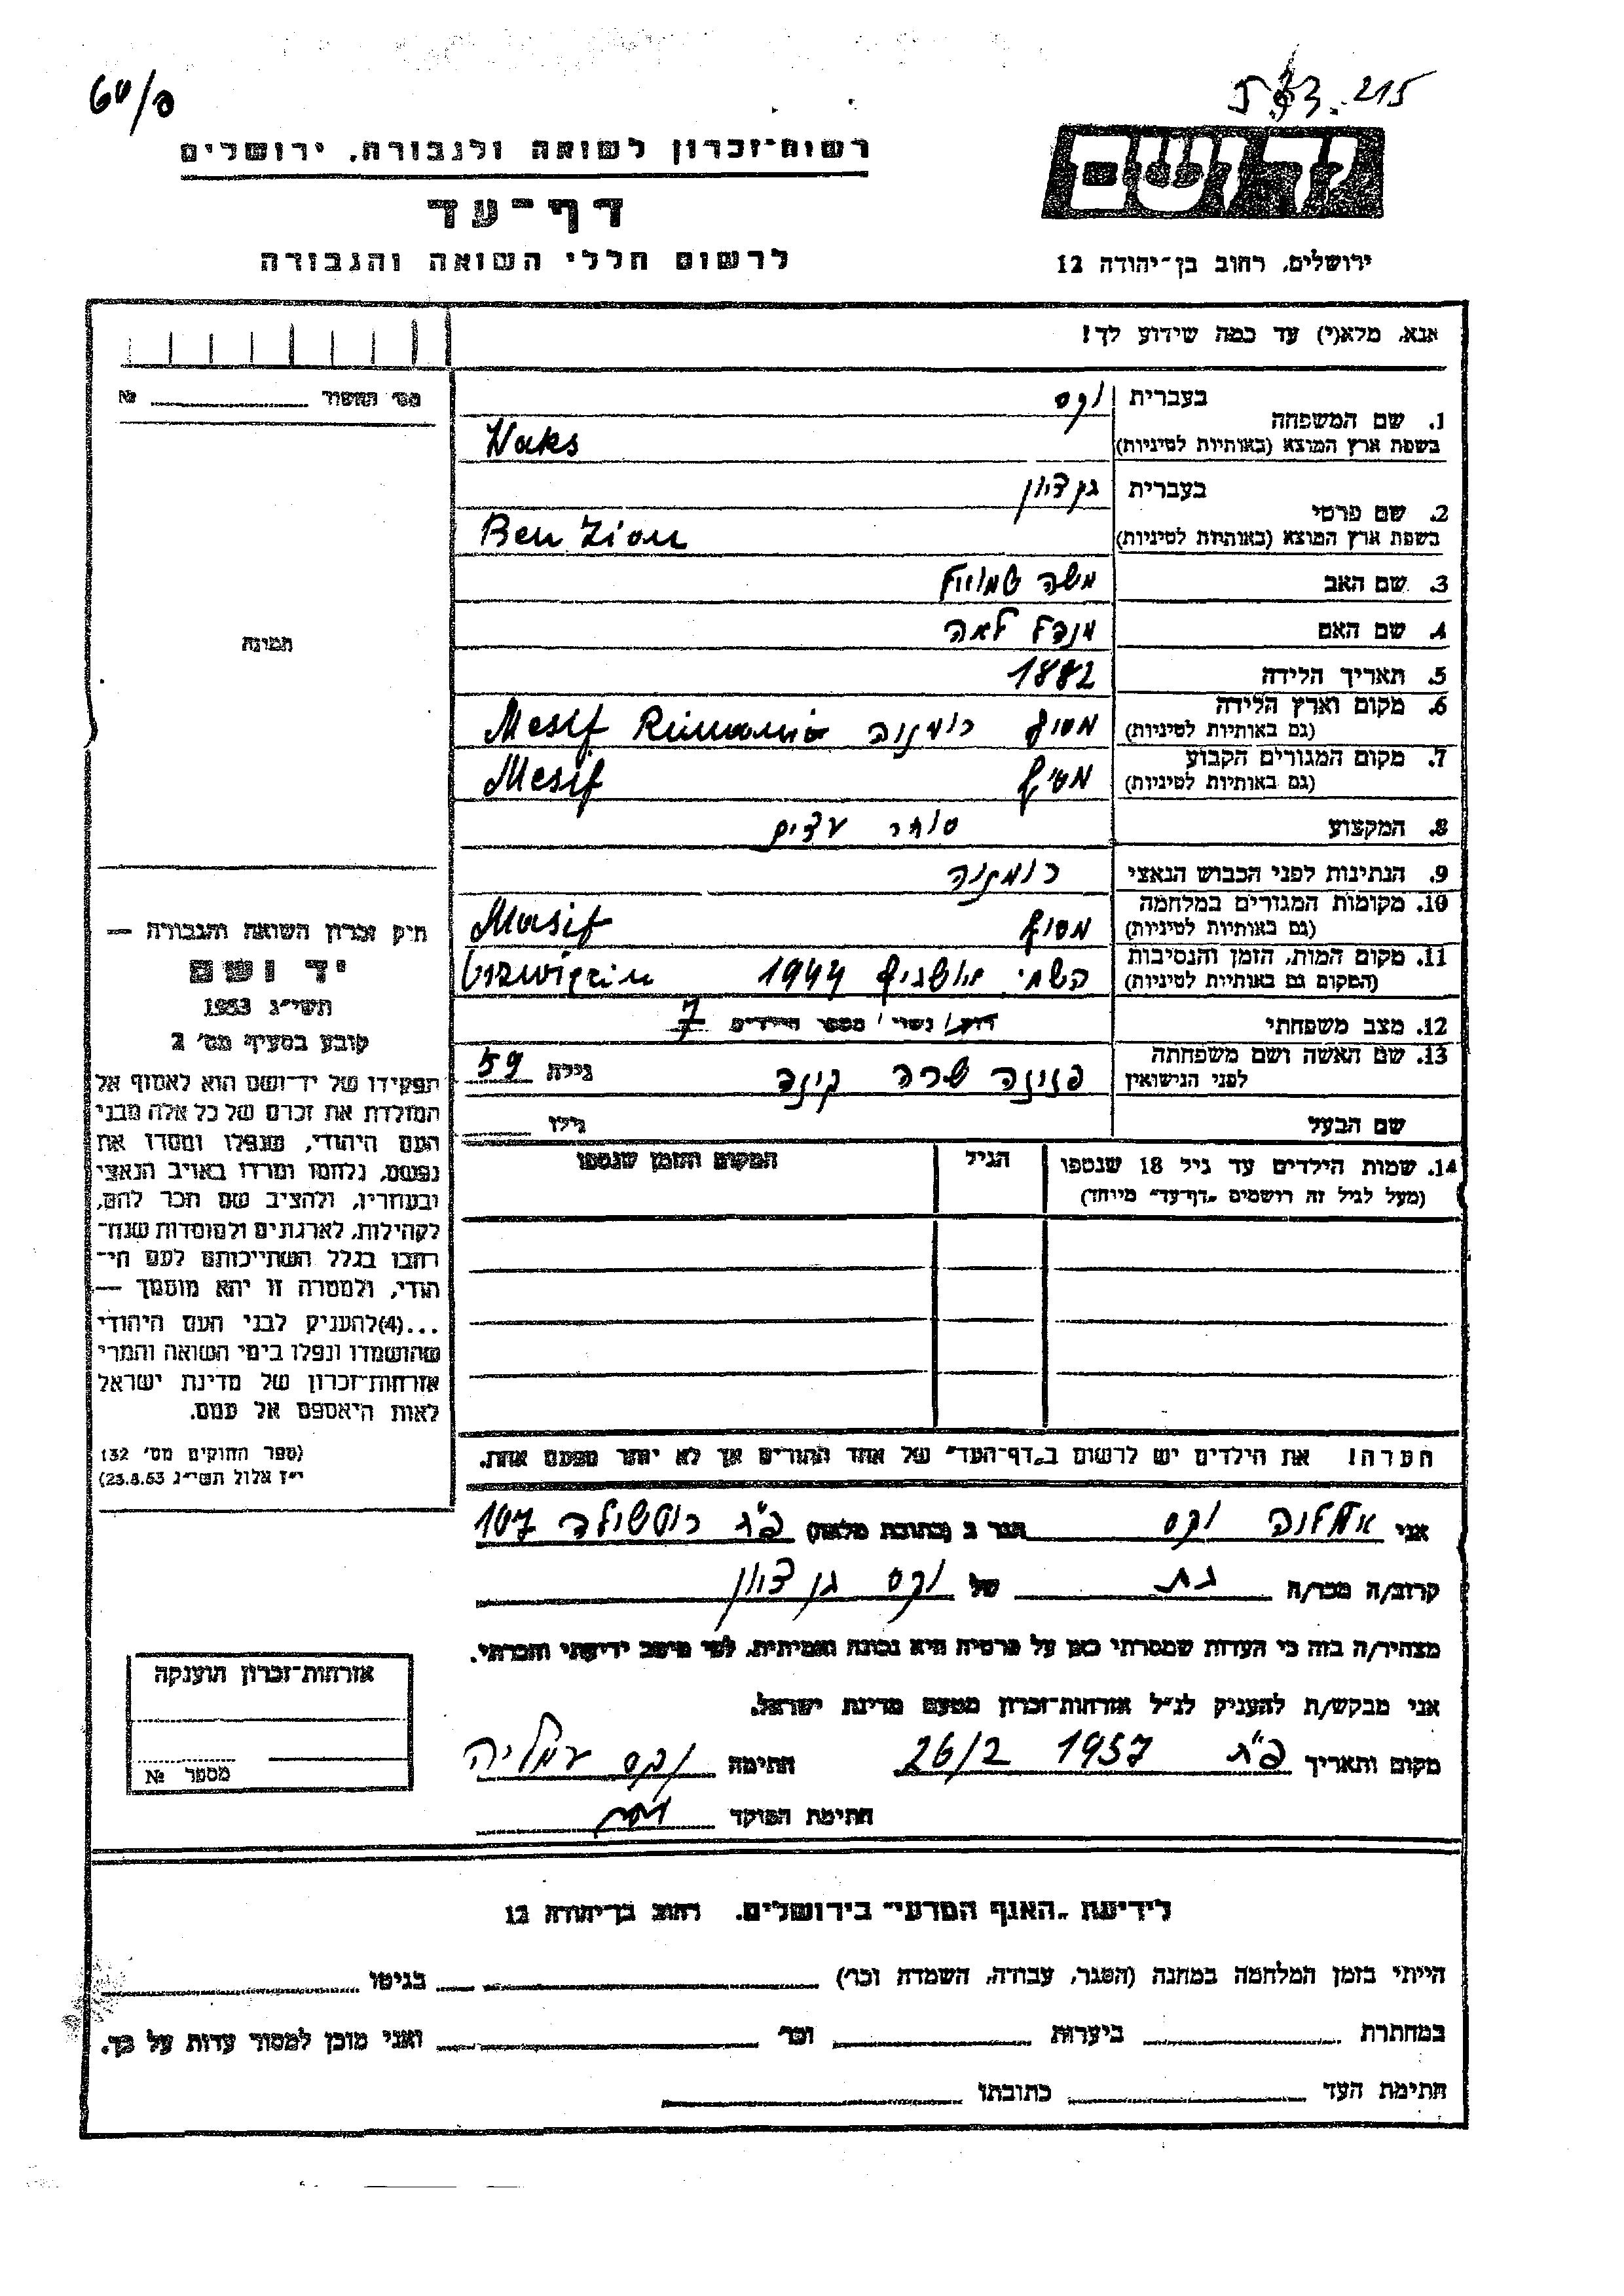 60/ס
215
רשות־זכרון לשואה ולגבורה, ירושלים
דף־עד
לרשום חללי השואה והגבורה
יד ושם
ירושלים, רחוב בן־יהודה 12
אנא, מלא(י) עד כמה שידוע לך!
מס' התשור №
תמונה
1. שם המשפחה
בעברית וקס
בשפת ארץ המוצא (באותיות לטיניות) Waks
2. שם פרטי
בעברית בן ציון
בשפת ארץ המוצא (באותיות לטיניות) Ben Zion
3. שם האב משה שמואל
4. שם האם מנדל לאה
5. תאריך הלידה 1882
6. מקום וארץ הלידה
(גם באותיות לטיניות) מסיף רומניה Mesif Rumania
7. מקום המגורים הקבוע
(גם באותיות לטיניות) מסיף Mesif
8. המקצוע סוחר עצים
9. הנתינות לפני הכבוש הנאצי רומניה
10. מקומות המגורים במלחמה
(גם באותיות לטיניות) מסיף Masif
11. מקום המות, הזמן והנסיבות
(המקום גם באותיות לטיניות) 1944
12. מצב משפחתי רווק/ נשוי/ מספר הילדים 7
13. שם האשה ושם משפחתה
לפני הנישואין שרה גילה 59
שם הבעל גילו
14. שמות הילדים עד גיל 18 שנספו
(מעל לגיל זה רושמים "דף־עד" מיוחד)
הגיל
המקום והזמן שנספו
הערה! את הילדים יש לרשום ב"דף־העד" של אחד ההורים אך לא יותר מפעם אחת.
חוק זכרון השואה והגבורה —
יד ושם
תשי"ג 1953
קובע בסעיף מס' 2
תפקידו של יד־ושם הוא לאסוף אל
המולדת את זכרם של כל אלה מבני
העם היהודי, שנפלו ומסרו את
נפשם, נלחמו ומרדו באויב הנאצי
ובעוזריו, ולהציב שם וזכר להם,
לקהילות, לארגונים ולמוסדות שנח־
רבו בגלל השתייכותם לעם הי־
הודי, ולמטרה זו יהא מוסמך —
...(4)להעניק לבני העם היהודי
שהושמדו ונפלו בימי השואה והמרי
אזרחות־זכרון של מדינת ישראל
לאות היאספם אל עמם.
(ספר החוקים מס' 132
י"ז אלול תשי"ג 23.8.53)
אני וקס הגר ב (כתובת מלאה) פ"ת רוטשילד 107
קרוב/ה מכר/ה בת של וקס בן ציון
מצהיר/ה בזה כי העדות שמסרתי כאן על פרטיה היא נכונה ואמיתית, לפי מיטב ידיעתי והכרתי.
אני מבקש/ת להעניק לנ"ל אזרחות־זכרון מטעם מדינת ישראל.
מקום ותאריך פ"ת 1957 26/2 חתימה וקס עמליה
חתימת הפוקד
אזרחות־זכרון הוענקה
מספר №
לידיעת "האגף המדעי" בירושלים. רחוב בן־יהודה 12
הייתי בזמן המלחמה במחנה (הסגר, עבודה, השמדה וכו') בגיטו
במחתרת ביערות וכו' ואני מוכן למסור עדות על כך.
חתימת העד כתובתו